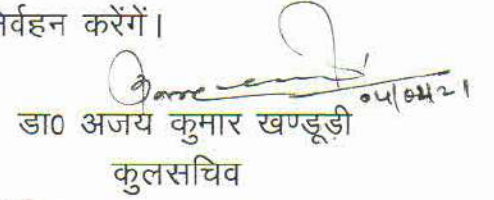 र्वहन करेंगें।
डा0 अजय कुमार खण्डूड़ी
कुलसचिव